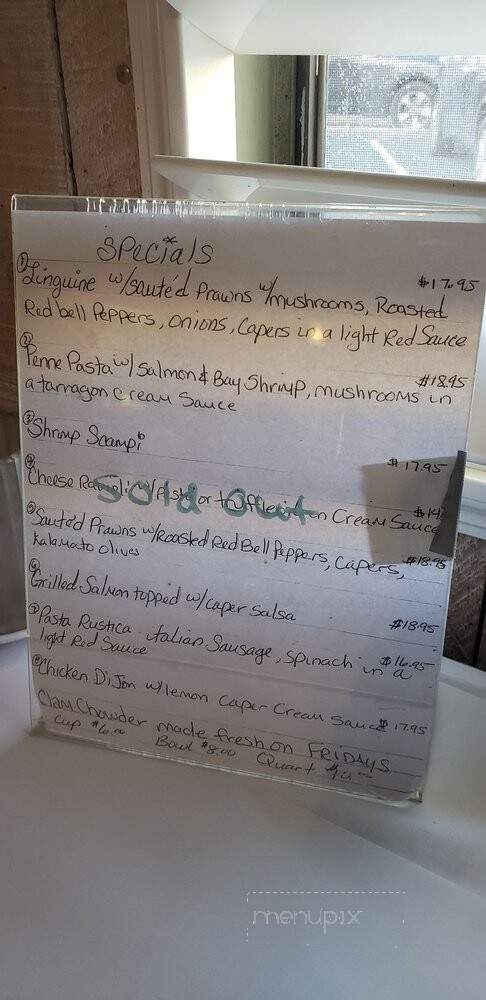 Specials
① Linguine w/sauté'd Prawns w/mushrooms, Roasted $17.95
Red bell Peppers, onions, Capers in a light Red Sauce
② Penne Pasta w/ Salmon & Bay Shrimp, mushrooms in $18.95
a tarragon Cream Sauce
③ Shrimp Scampi $17.95
④ Cheese Ravioli w/ or truffle Cream Sauce
Sold Out
⑤ Sauté'd Prawns w/Roasted Red Bell Peppers, Capers, $18.95
Kalamato Olives
Grilled Salmon topped w/caper salsa $18.95
⑦ Pasta Rustica italian Sausage, spinach in a $16.95
light Red Sauce
⑧ Chicken DiJon w/lemon caper Cream Sauce $17.95
Clam Chowder made fresh on FRIDAYS
Cup $6.00 Bowl $8.00 Quart
menupix